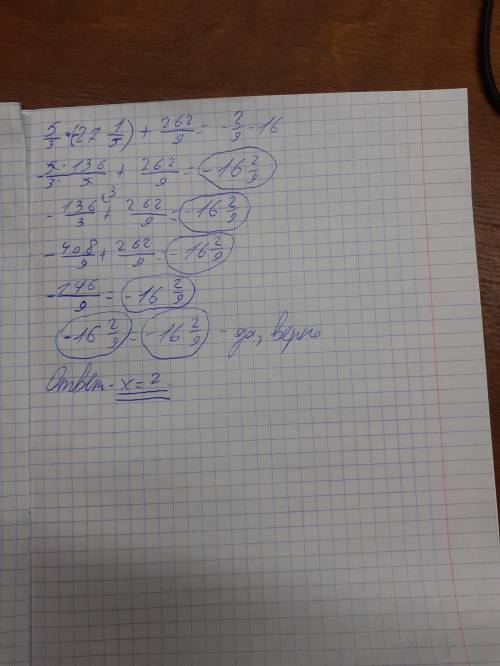 5/3 · (-27 1/5) + 262/9 = -2/9 - 16
-5·136/3·5 + 262/9 = -16 2/9
-136/3 ^3 + 262/9 = -16 2/9
-408/9 + 262/9 = -16 2/9
-146/9 = -16 2/9
-16 2/9 = -16 2/9 - да, верно
Ответ: x = 2